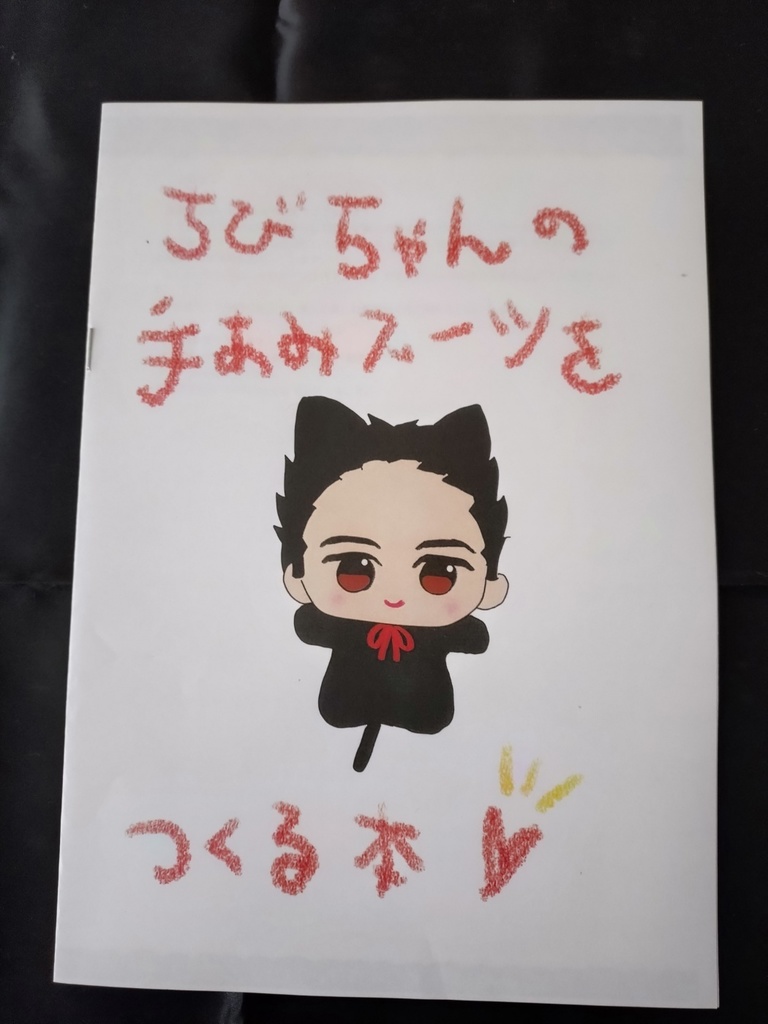 ろびちゃんの
手あみスーツを
つくる本